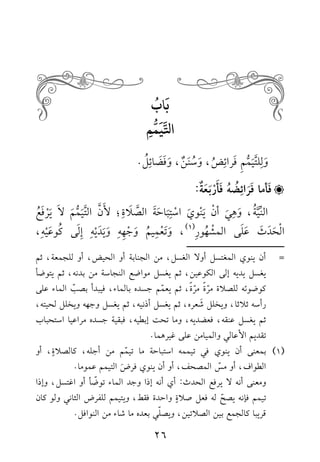 بَابُ
التَّيَمُّمِ
وَلِلتَّيَمُّمِ فَرائِضُ، وَسُنَنٌ، وَفَضَائِلُ.
فَأما فَرَائِضُهُ فَأَرْبَعَةٌ:
النِّيَّةُ، وَهِيَ أَنْ يَنْوِيَ اسْتِبَاحَةَ الصَّلَاةِ؛ لأَنَّ التَّيَمُّمَ لاَ يَرْفَعُ
الْحَدَثَ عَلَى المشْهُورِ(١)، وَتَعْمِيمُ وَجْهِهِ وَيَدَيْهِ إِلَى كُوعَيْهِ،
= أن ينوي المغتسل أولا الغسل، من الجنابة أو الحيض، أو للجمعة، ثم
يغسل يديه إلى الكوعين، ثم يغسل مواضع النجاسة من بدنه، ثم يتوضأ
كوضوئه للصلاة مرّةً مرّةً، ثم يعمّم جسده بالماء، فيبدأ بصبّ الماء على
رأسه ثلاثا، ويخلل شعره، ثم يغسل أذنيه، ثم يغسل وجهه ويخلل لحيته،
ثم يغسل عنقه، فعضديه، وما تحت إبطيه، فبقية جسده مراعيا استحباب
تقديم الأعالي والميامن على غيرهما.
(١) بمعنى أن ينوي في تيممه استباحة ما تيمّم من أجله، كالصلاةِ، أو
الطواف، أو مسّ المصحف، أو أن ينوي فرضَ التيمم عموما.
ومعنى أنه لا يرفع الحدث: أي أنه إذا وجد الماء توضّأ أو اغتسل، وإذا
تيمم فإنه يصحّ له فعل صلاةٍ واحدة فقط، ويتيمم للفرض الثاني ولو كان
قريبا كالجمع بين الصلاتين، ويصلّي بعده ما شاء من النوافل.
٢٦